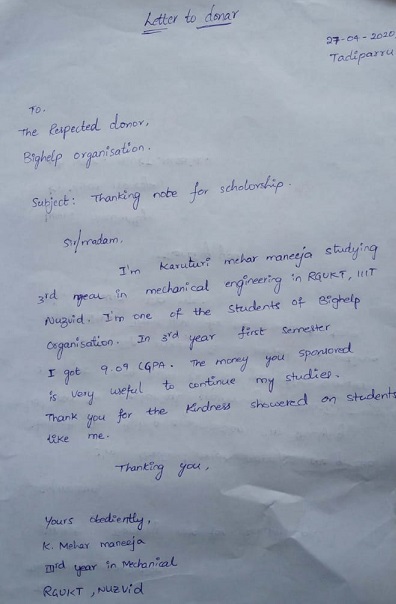 Letter to donar
27-04-2020
Tadiparru
To.
The Respected donor,
Bighelp organisation.
Subject: Thanking note for scholorship.
Sir/madam,
I'm Karuturi mehar maneeja studying
3rd year in mechanical engineering in RGUKT, IIIT
Nuzvid. I'm one of the students of Bighelp
Organisation. In 3rd year first semester
I got 9.09 CGPA. The money you sponsored
is very useful to continue my studies.
Thank you for the kindness showered on students
like me.
Thanking you,
Yours obediently,
K. Mehar maneeja
IIIrd year in Mechanical
RGUKT, NUZVid